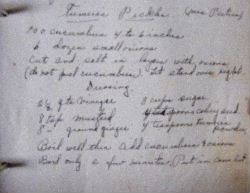 Pickles
100 cucumbers 4 to 6 inches
6 dozen small onions
Cut and salt in layers with onions
(do not peel cucumbers) let stand over night
Dressing
qts vinegar 8 cups sugar
8 tsp mustard
8 " ground ginger 4 teaspoons
powder
Boil well then add cucumbers & onions
Boil only a few minutes. Put in cans hot